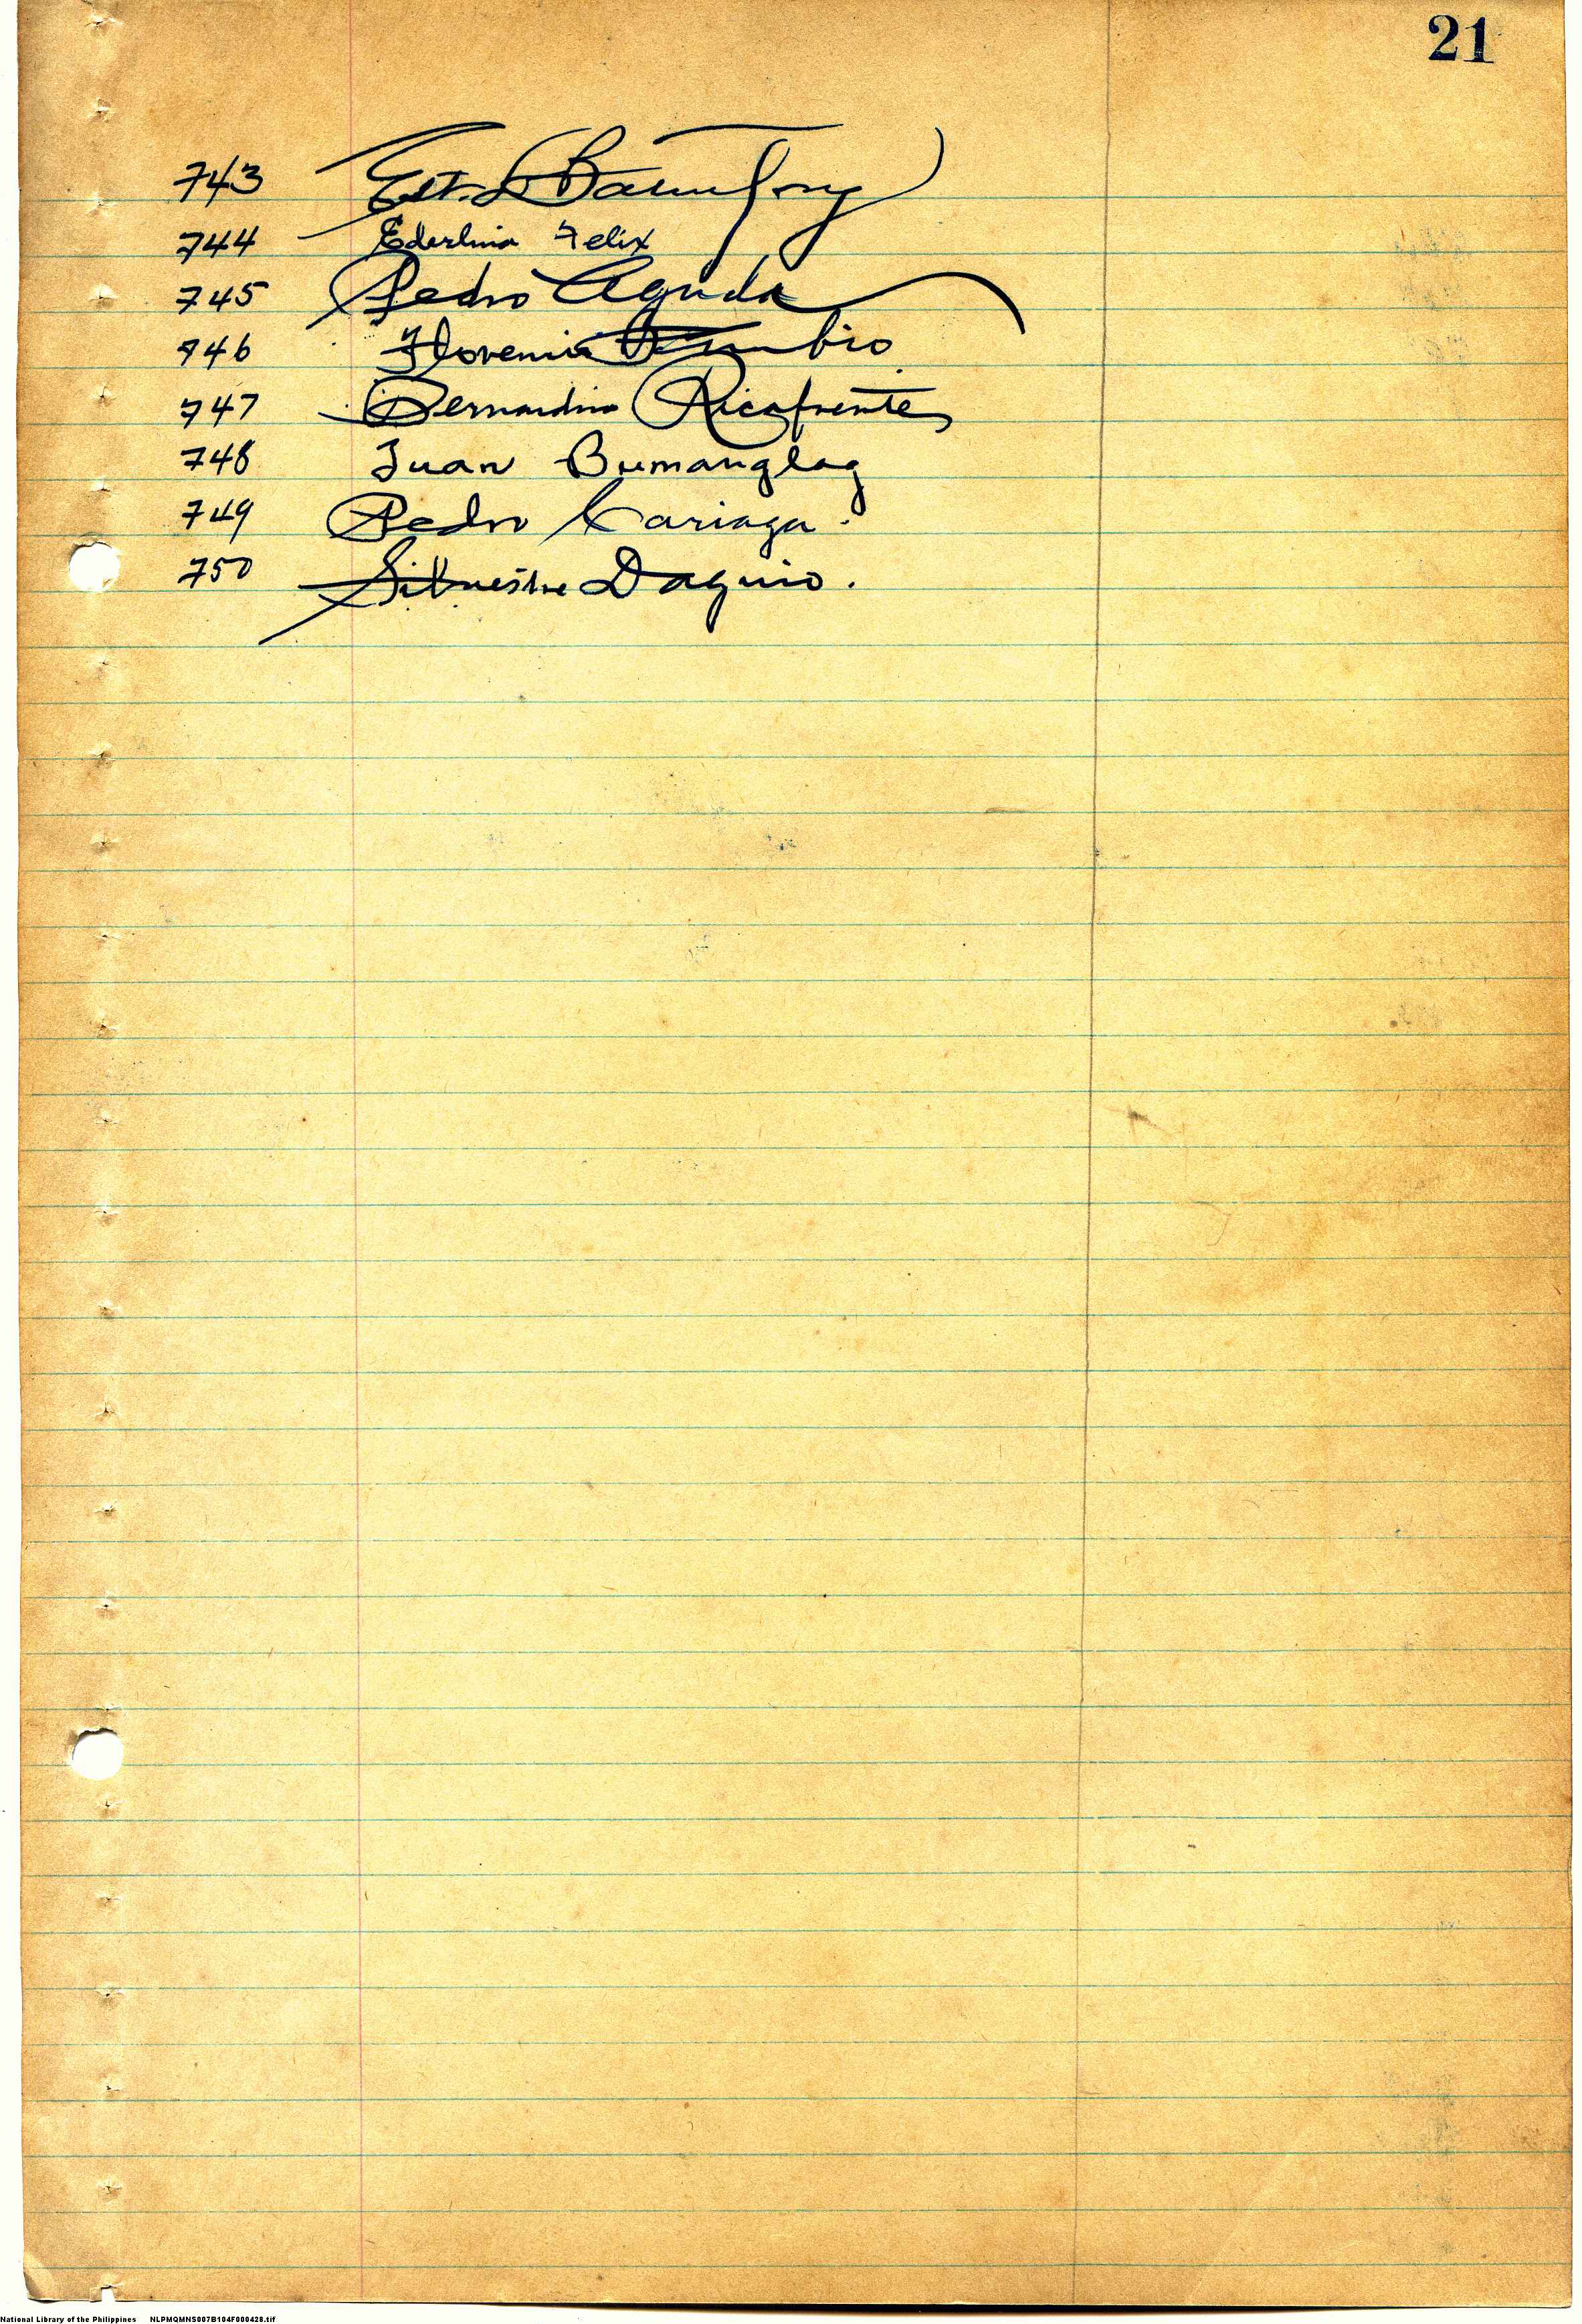 21
743
744 Ederlina Felix
745 Pedro Aguda
746 Florencia
747 Bernardino Ricafrente
748 Juan Bumanglag
749 Pedro Cariaga.
750 Silvestre Daquio.
National Library of the Philippines NLPMQMNS007B104F000428.tif